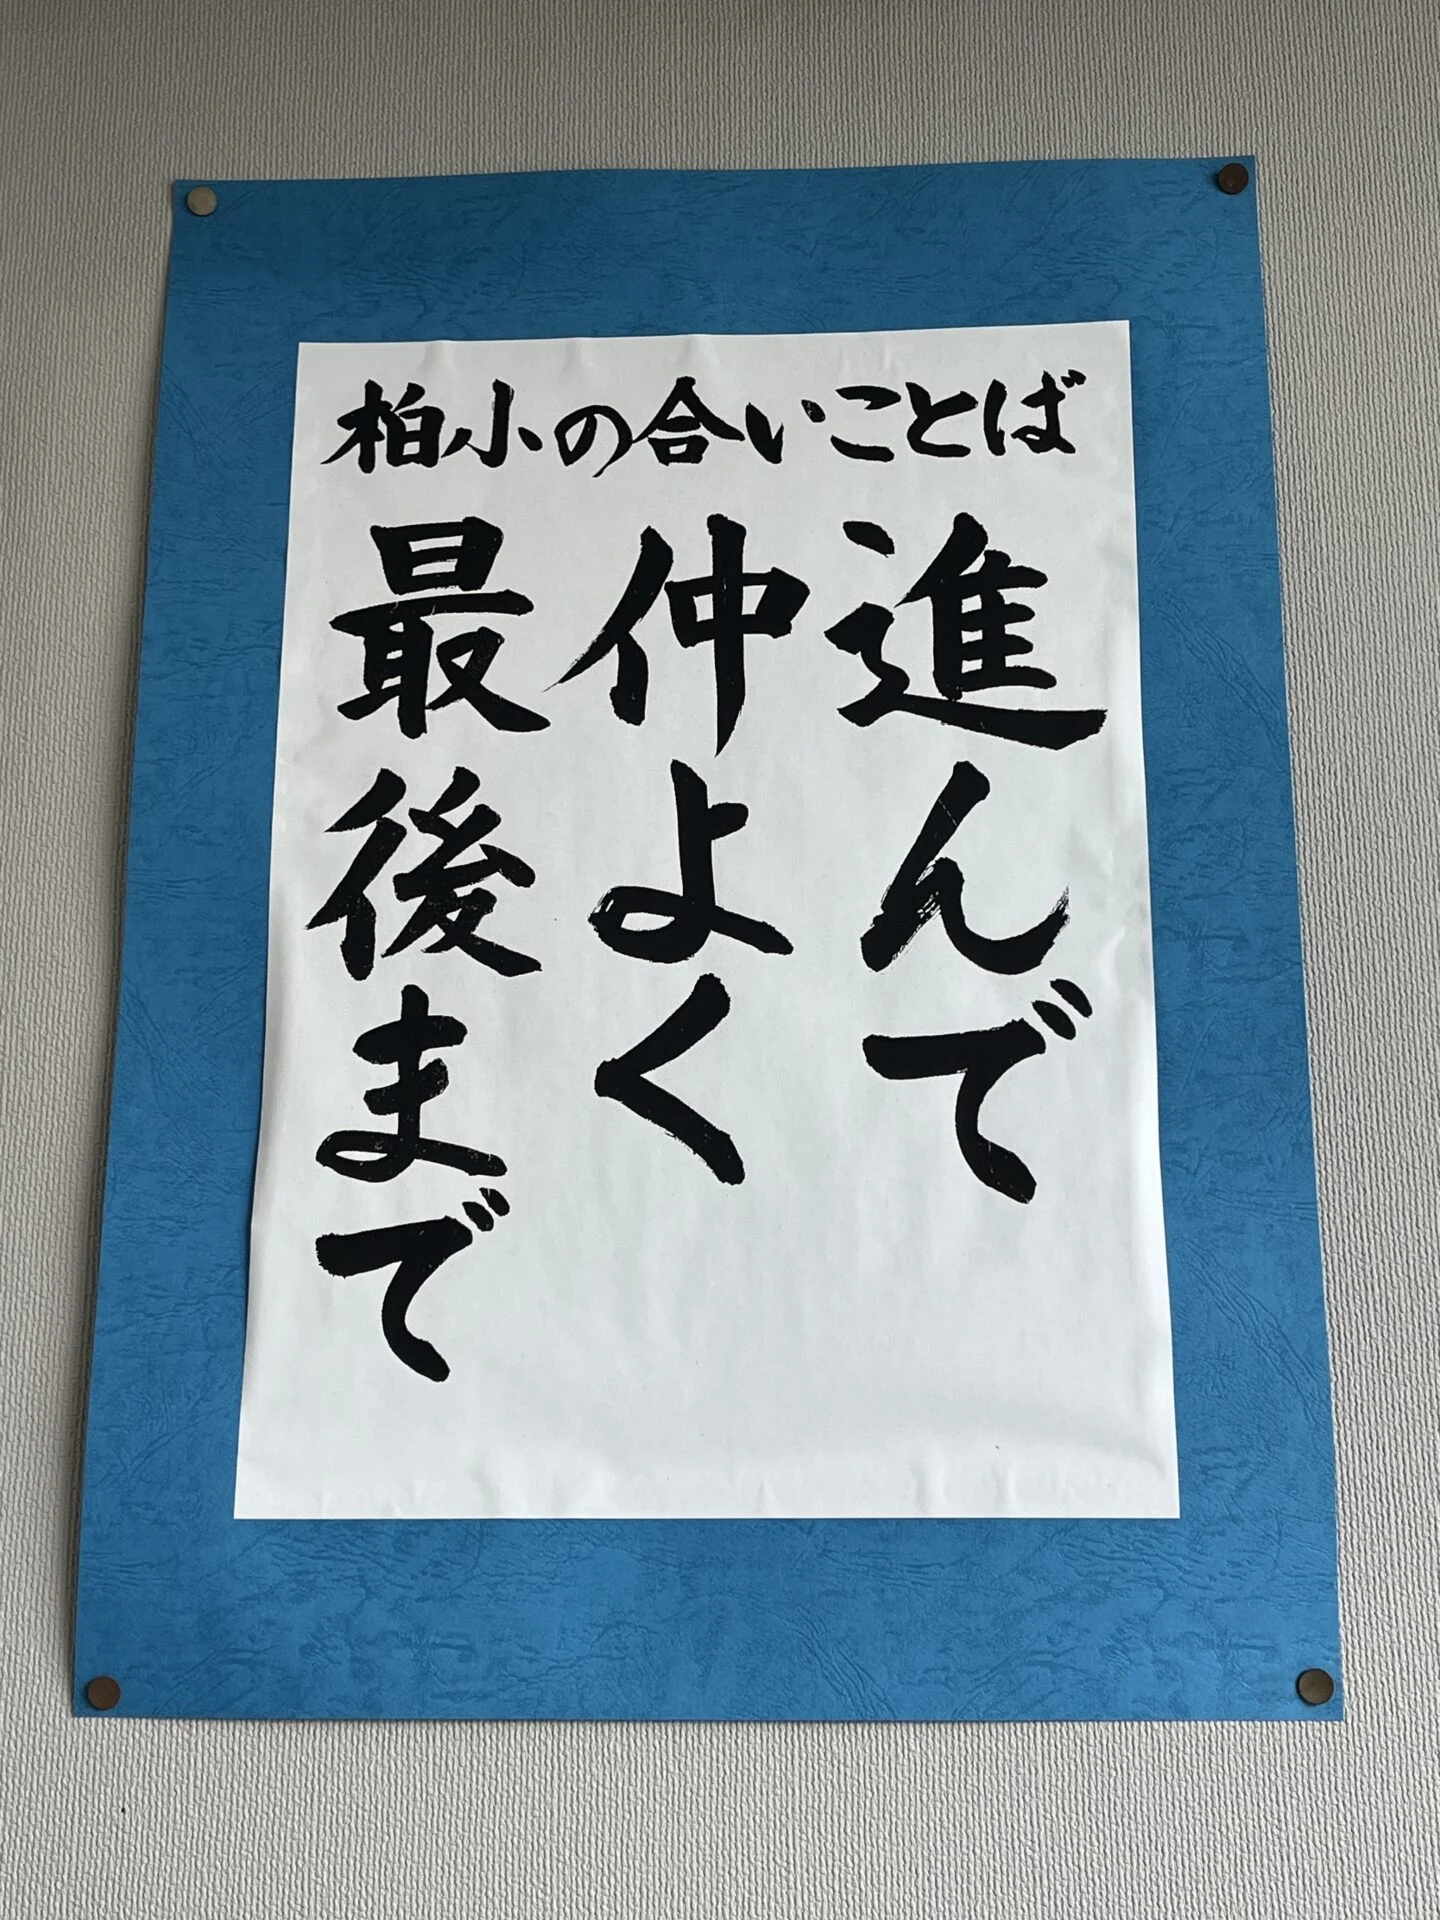 柏小の合いことば
進んで
仲よく
最後まで